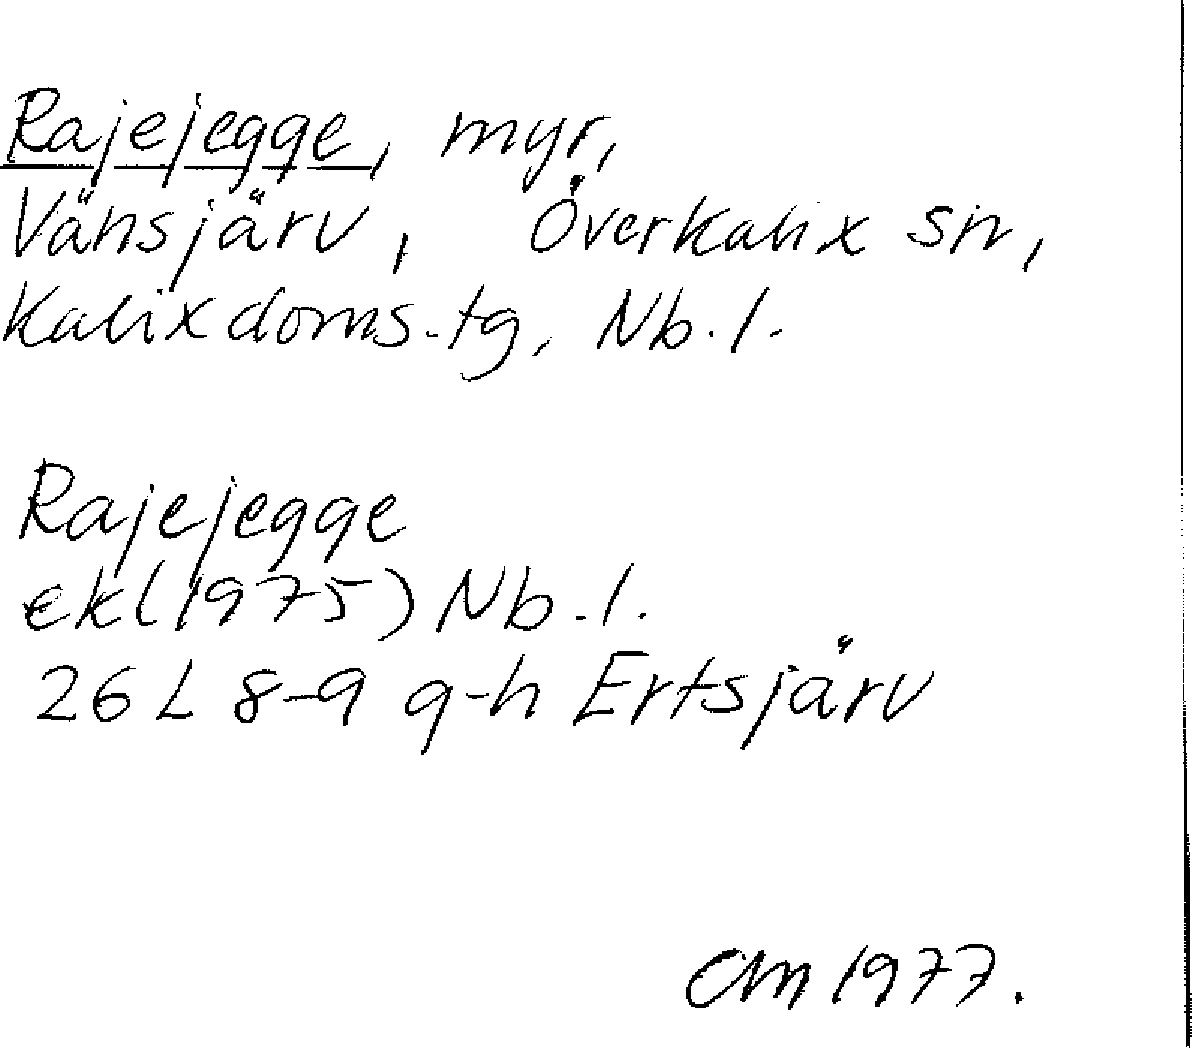 Rajejegge, myr,
Vänsjärv, Överkalix sn,
Kalix doms.tg, Nb.l.
Rajejegge
ek (1975) Nb.l.
26 L 8-9 g-h Ertsjärv
CM 1977.